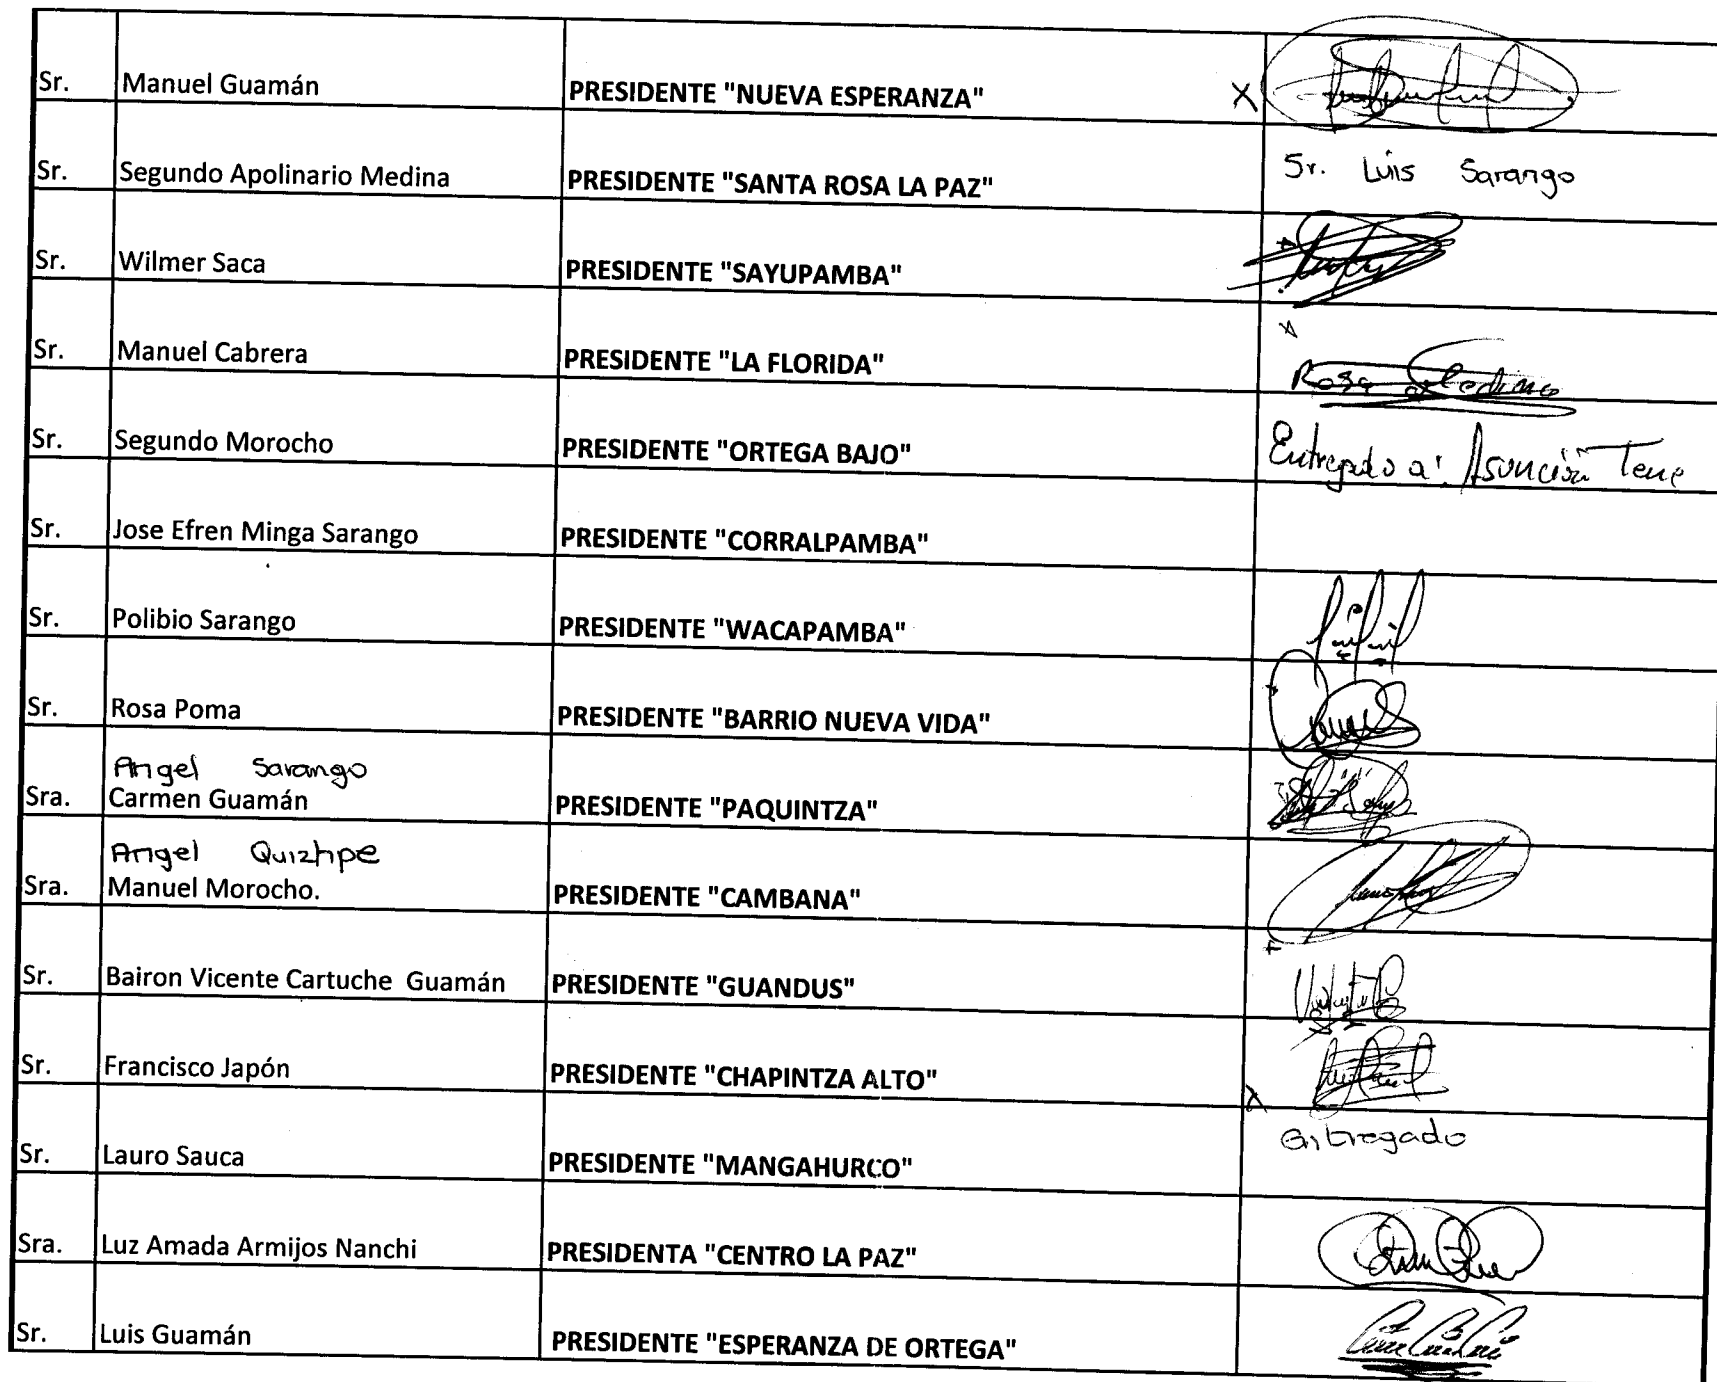 Sr. Manuel Guamán PRESIDENTE "NUEVA ESPERANZA" X
Sr. Segundo Apolinario Medina PRESIDENTE "SANTA ROSA LA PAZ" Sr. Luis Sarango
Sr. Wilmer Saca PRESIDENTE "SAYUPAMBA"
Sr. Manuel Cabrera PRESIDENTE "LA FLORIDA" Rosa
Sr. Segundo Morocho PRESIDENTE "ORTEGA BAJO" Entregado a: Asunción Tene
Sr. Jose Efren Minga Sarango PRESIDENTE "CORRALPAMBA"
Sr. Polibio Sarango PRESIDENTE "WACAPAMBA"
Sr. Rosa Poma PRESIDENTE "BARRIO NUEVA VIDA"
Angel Sarango
Sra. Carmen Guamán PRESIDENTE "PAQUINTZA"
Angel Quizhpe
Sra. Manuel Morocho. PRESIDENTE "CAMBANA"
Sr. Bairon Vicente Cartuche Guamán PRESIDENTE "GUANDUS"
Sr. Francisco Japón PRESIDENTE "CHAPINTZA ALTO" X
Sr. Lauro Sauca PRESIDENTE "MANGAHURCO" entregado
Sra. Luz Amada Armijos Nanchi PRESIDENTA "CENTRO LA PAZ"
Sr. Luis Guamán PRESIDENTE "ESPERANZA DE ORTEGA"